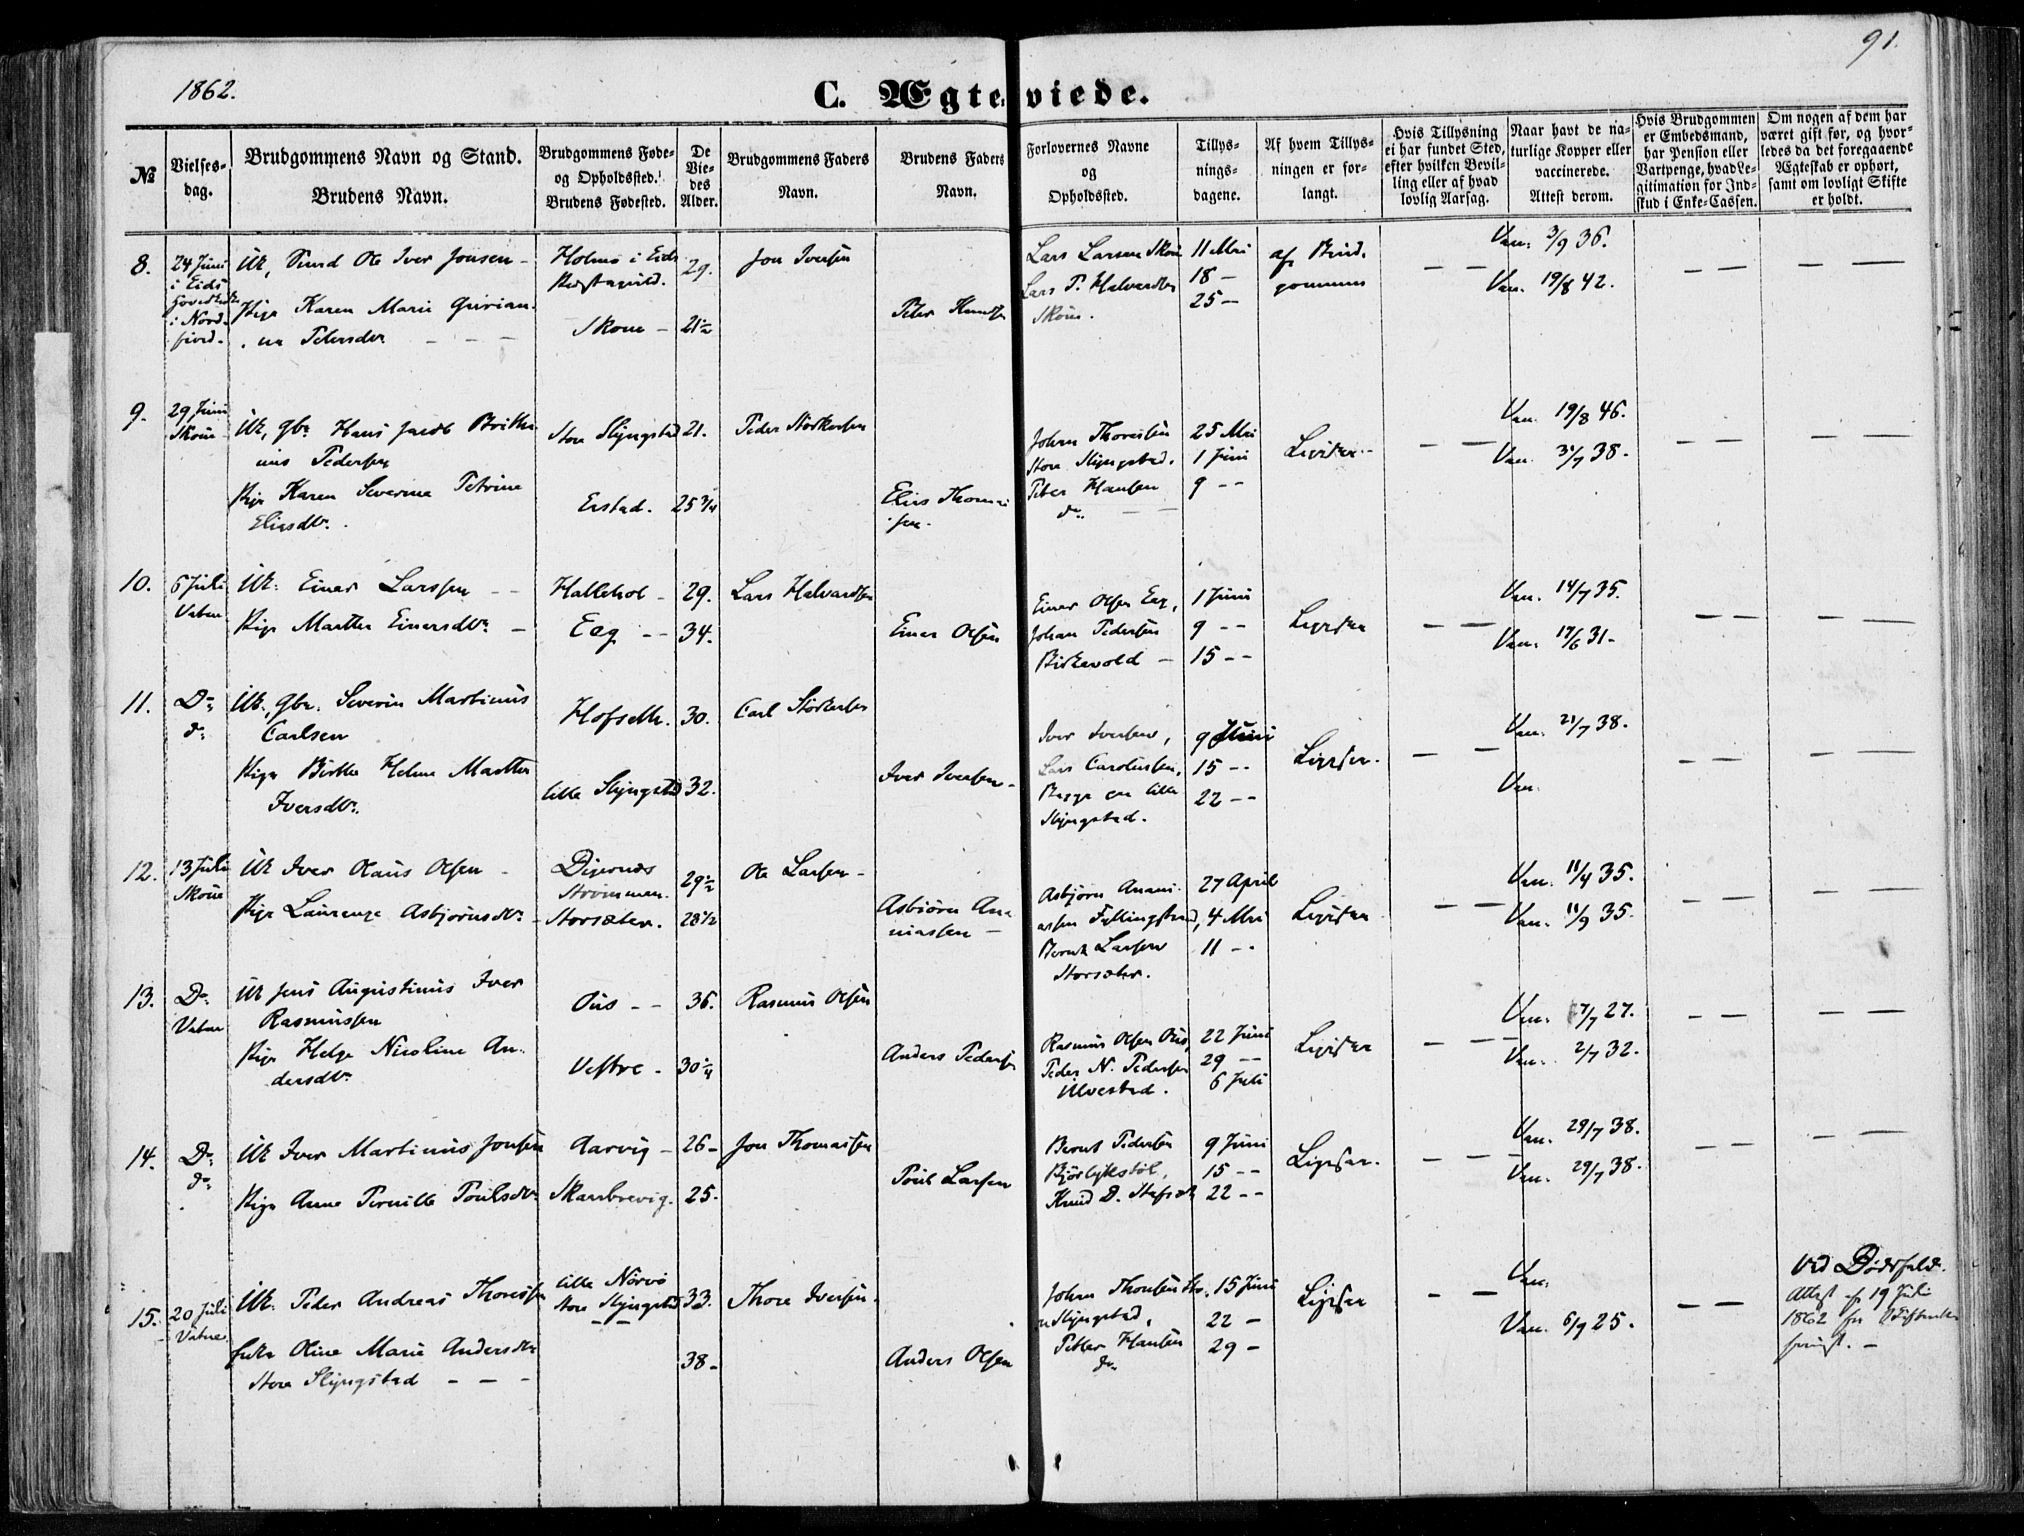 1862.
C. Ægteviede.
91.
№
Vielses-
dag.
Brudgommens Navn og Stand.
Brudens Navn.
Brudgommens Føde-
og Opholdssted.
Brudens Fødested.
De
Vie-
des
Alder.
Brudgommens Faders
Navn.
Brudens Faders
Navn.
Forlovernes Navne
og
Opholdssted.
Tillys-
nings-
dagene.
Af hvem Tillys-
ningen er for-
langt.
Hvis Tillysning
ei har fundet Sted,
efter hvilken Bevil-
ling eller af hvad
lovlig Aarsag.
Naar havt de na-
turlige Kopper eller
vaccinerede.
Attest derom.
Hvis Brudgommen
er Embedsmand,
har Pension eller
Vartpenge, hvad Le-
gitimation for Ind-
skud i Enke-Cassen.
Om nogen af dem har
været gift før, og hvor-
ledes da det foregaaende
Ægteskab er ophørt,
samt om lovligt Skifte
er holdt.
8.
24 Juni
i Eids
Hovedkirke
i Nord-
fiord.
Uk, Ole Iver Jonsen -
Pige Karen Marie
Petersdtr
Holmø i Eids
Præstegield.
Skoue -
29.
21½
Jon Iversen
Peter Knudsen
Lars Larsen Skoue
Lars P. Halvardsen
Skoue.
11 Mai
18 -
25 -
af Brud-
gommen
Vac. 3/9 36.
Vac. 19/8 42.
9.
29 Juni
Skoue
Uk, Gbr. Hans Jacob
Pedersen
Pige Karen Severine Petrine
Eliasdtr.
Store Slyngstad
Erstad.
21.
25 3/4
Peder Størkersen
Elias Thomas-
sen.
Johan Thoresen
Store Slyngstad.
Peter Hansen
do.
25 Mai
1 Juni
9 --
Ligesaa.
Vac. 19/8 46.
Vac. 38.
10.
6 Juli
Vatne
Uk. Einar Larssen --
Pige Marthe Einersdtr. -
Hallehol -
Eeg --
29.
34.
Lars Halvardsen
Einar Olsen
Einar Olsen Eeg,
Johan Pedersen
Birkevold -
1 Juni
9 --
15 --
Ligesaa
Vac. 14/7 35.
Vac. 17/6 31-
11.
Do.
do.
Uk., Gbr. Severin Martinus
Carlsen
Pige Birthe Helene Marthe
Iversdtr.
Hofseth.
Lille Slyngstad
30.
32.
Carl Størkersen
Iver Iversen -
Iver Iversen,
Lars Carolussen,
Begge paa Lille
Slyngstad.
9 Juni
15 --
22 --
Ligesaa.
Vac. 21/7 38.
Vac.
12.
13 Juli
Skoue
Uk Iver Olaus Olsen -
Pige Laurenze Asbjørnsdtr. -
Digernes
Strømmen.
Storsæter.
29½
28½
Ole Larsen -
Asbiørn Ana-
niassen -
Asbjørn Anani-
assen Fyllingstrand,
Bernt Larsen
Storsæter.
27 April
4 Mai
11 --
Ligesaa
Vac. 11/4 35.
Vac. 11/9 35.
13.
Do.
Vatne
Uk Jens Augustinus Iver
Rasmussen
Pige Helge Nicoline An-
dersdtr.
Ous --
Vestre -
36.
30¼
Rasmus Olsen
Anders Pedersen
Rasmus Olsen Ous,
Peder N. Pedersen
Ulvestad.
22 Juni
29 --
6 Juli
Ligesaa
Vac. 7/7 27.
Vac. 2/7 32.
14.
Do.
do.
Uk Iver Martinus Jonsen
Pige Anne Pernille Poulsdtr.
Aarvig -
Skarbrevig.
26-
25.
Jon Thomassen
Poul Larsen
Bernt Pedersen
Bjørlykstøl,
Knud D.
9 Juni
15 --
22 --
Ligesaa.
Vac. 29/7 38.
Vac. 29/7 38.
15.
20 Juli
Vatne
Uk. Peder Andreas Thoresen
Enke Oline Marie Andersdtr
Store Slyngstad - - -
Lille Nørvø
Store Slyngstad
33.
38-
Thore Iversen.
Anders Olsen
Johan Thoresen Sto-
re Slyngstad,
Petter Hansen
do
15 Juni
22 -
29 -
Ligesaa
Vac.
Vac. 6/9 25.
Ved Dødsfald.
Attest af 19 Juli
1862 fra Skifteretten
foreviist. -